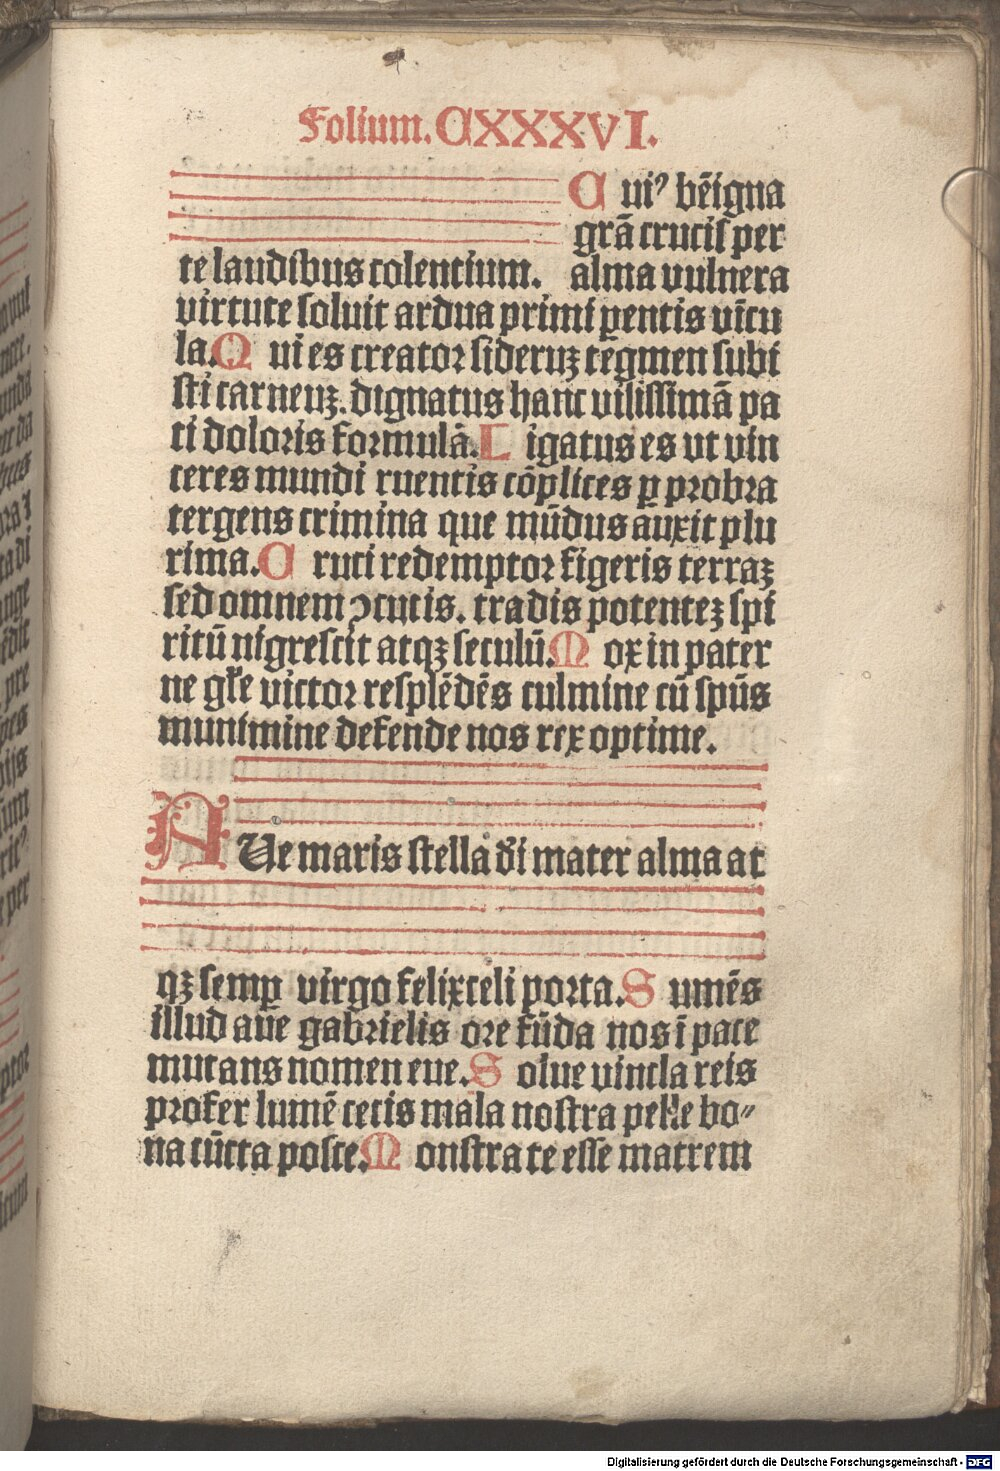 Folium. CXXXVI.
Cuiꝰ bēigna
grā crucis per
te laudibus colentium. alma vulnera
virtute soluit ardua primi ꝑentis vīcu
la. Qui es creator sideruꝫ tegmen subi
sti carneuꝫ. dignatus hanc vilissimā pa
ti doloris formulā. Ligatus es vt vin
ceres mundi ruentis cōplices ꝑ probra
tergens crimina que mūdus auxit plu
rima. Cruci redemptor figeris terraꝫ
sed omnem ↄcutis. tradis potenteꝫ spi
ritū nigrescit atqꝫ seculū. Mox in pater
ne gl'e victor resplēdēs culmine cū spūs
munimine defende nos rex optime.
AUe maris stella dī mater alma at
qꝫ semꝑ virgo felix celi porta. Sumēs
illud aūe gabrielis ore fūda nos ī pace
mutans nomen eue. Solue vincla reis
profer lumē cecis mala nostra pelle bo⸗
na cūcta posce. Monstra te esse matrem
Digitalisierung gefördert durch die Deutsche Forschungsgemeinschaft - DFG